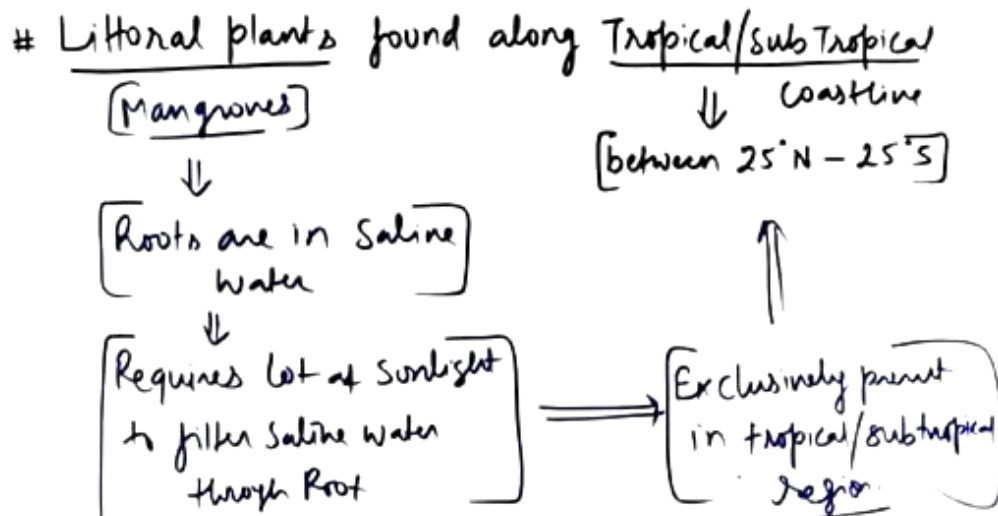 # Littoral plants found along Tropical/subTropical
coastline
[Mangroves]
[between 25°N - 25°S]
[Roots are in Saline
water]
[Requires lot of Sunlight
to filter Saline water
through Root]
[Exclusively present
in tropical/subtropical
region.]